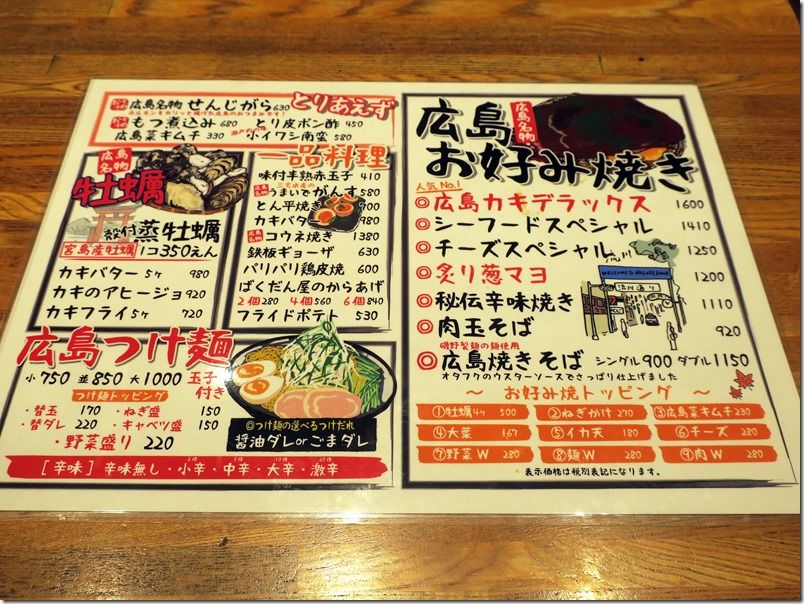 広島名物 せんじがら 630 とりあえず
ホルモンをカリッと揚げた広島のおつまみです!
もつ煮込み 680 とり皮ポン酢 450
広島菜キムチ 330 小イワシ南蛮 580
広島名物
牡蠣
殻付蒸牡蠣
宮島産牡蠣 1コ350えん
カキバター 5ヶ 980
カキのアヒージョ 920
カキフライ 5ヶ 720
一品料理
味付半熟赤玉子 410
うまいでがんす 580
とん平焼き 900
カキバター 980
コウネ焼き 1380
鉄板ギョーザ 630
パリパリ鶏皮焼 600
ばくだん屋のからあげ
2個 280 4個 560 6個 840
フライドポテト 530
広島つけ麺
小750 並850 大1000 玉子付き
つけ麺トッピング
・替玉 170 ・ねぎ盛 150
・替ダレ 220 ・キャベツ盛 150
・野菜盛り 220
◎つけ麺の選べるつけだれ
醤油ダレorごまダレ
[辛味] 辛味無し・小辛・中辛・大辛・激辛
広島名物
広島お好み焼き
人気No.1
◎広島カキデラックス 1600
◎シーフードスペシャル 1410
◎チーズスペシャル 1250
◎炙り葱マヨ 1200
◎秘伝辛味焼き 1110
◎肉玉そば 920
磯野製麺の麺使用
◎広島焼きそば シングル900 ダブル1150
オタフクのウスターソースでさっぱり仕上げました
～ お好み焼トッピング ～
①牡蠣4ヶ 500 ②ねぎかけ 270 ③広島菜キムチ 230
④大葉 167 ⑤イカ天 180 ⑥チーズ 280
⑦野菜W 280 ⑧麺W 280 ⑨肉W 280
表示価格は税別表記になります。